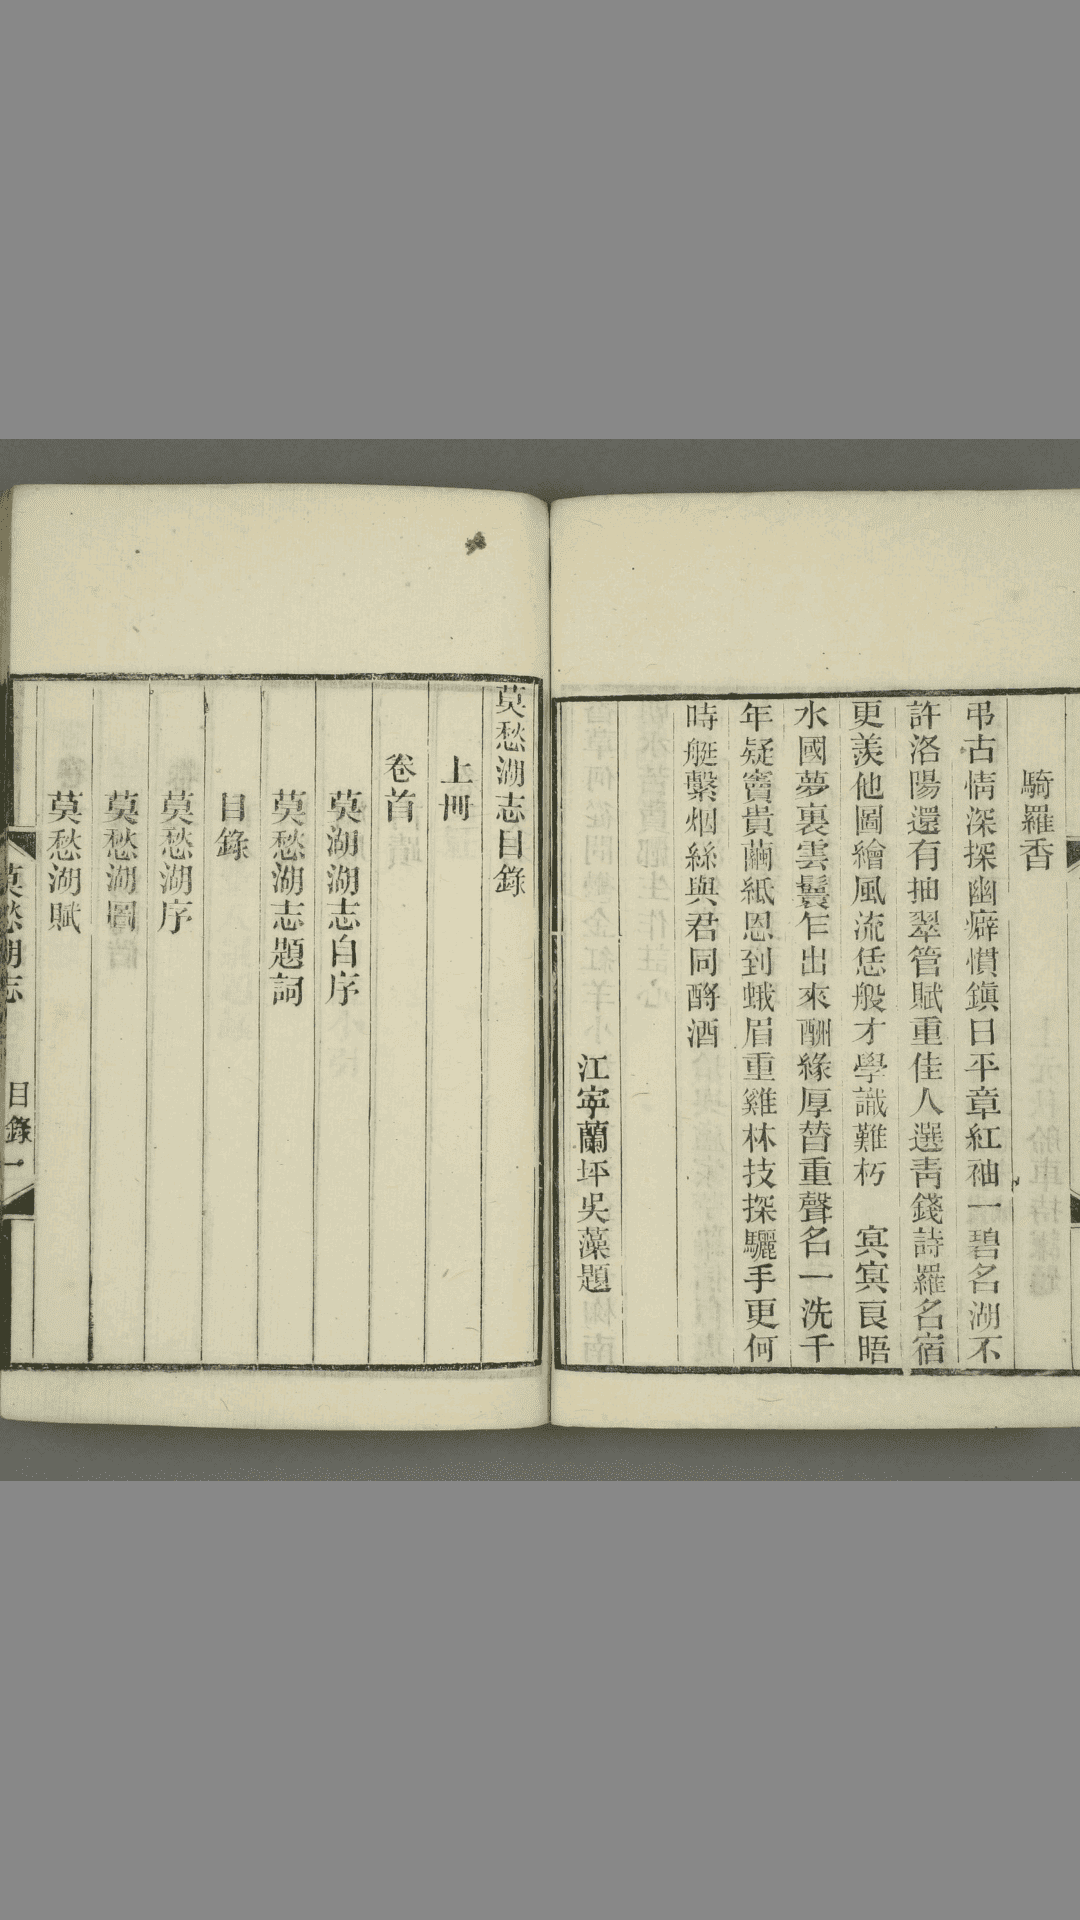 騎羅香
弔古情深探幽癖慣鎮日平章紅袖一碧名湖不
許洛陽還有抽翠管賦重佳人選靑錢詩羅名宿
更羨他圖繪風流恁般才學識難朽　㝠㝠良晤
水國夢裏雲鬟乍出來酬緣厚替重聲名一洗千
年疑竇貴繭紙恩到蛾眉重雞林技探驪手更何
時艇繫烟絲與君同酹酒
江寧蘭坪吳藻題
莫愁湖志目錄
上冊
卷首
莫湖湖志自序
莫愁湖志題詞
目錄
莫愁湖序
莫愁湖圖
莫愁湖賦
莫愁湖志
目錄一